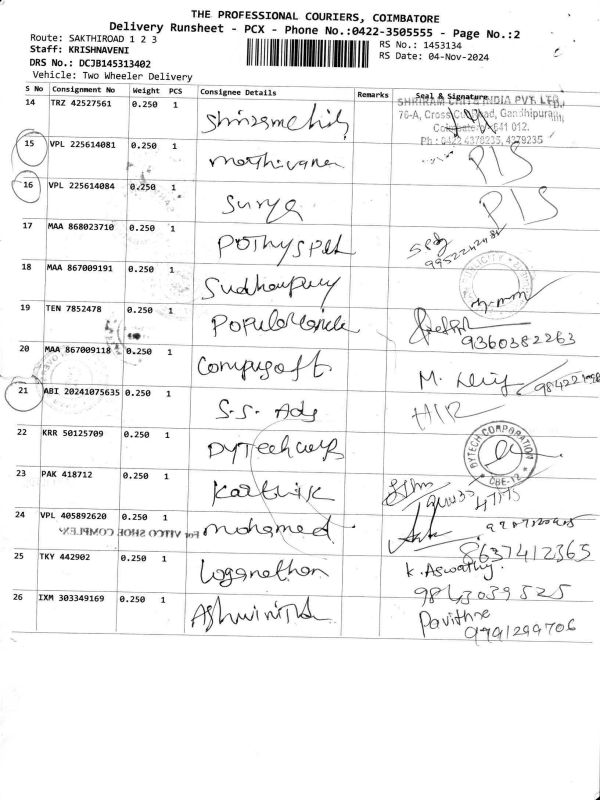 THE PROFESSIONAL COURIERS, COIMBATORE
Delivery Runsheet - PCX - Phone No.:0422-3505555 - Page No.:2
Route: SAKTHIROAD 1 2 3
RS No.: 1453134
Staff: KRISHNAVENI
RS Date: 04-Nov-2024
DRS No.: DCJB145313402
Vehicle: Two Wheeler Delivery
S No Consignment No Weight PCS Consignee Details Remarks Seal & Signature
14 TRZ 42527561 0.250 1
SHRIRAM CHITS INDIA PVT. LTD.,
76-A, Cross Cut Road, Gandhipuram,
Coimbatore-641 012.
Ph : 0422 4378235, 4379235
15 VPL 225614081 0.250 1 P/S
16 VPL 225614084 0.250 1 Surya P/S
17 MAA 868023710 0.250 1
18 MAA 867009191 0.250 1
19 TEN 7852478 0.250 1
9360382263
20 MAA 867009118 0.250 1 Compusoft M.
21 ABI 20241075635 0.250 1 S.S. Ads H/R
22 KRR 50125709 0.250 1 Dytech corp DYTECH CORPORATION CBE-12
23 PAK 418712 0.250 1 Karthik
24 VPL 405892620 0.250 1 mohamed
For VITCO SHOE COMPLEX
8637412365
25 TKY 442902 0.250 1 Loganathan K. Aswathy
9843039525
26 IXM 303349169 0.250 1 Pavithra
9791299706